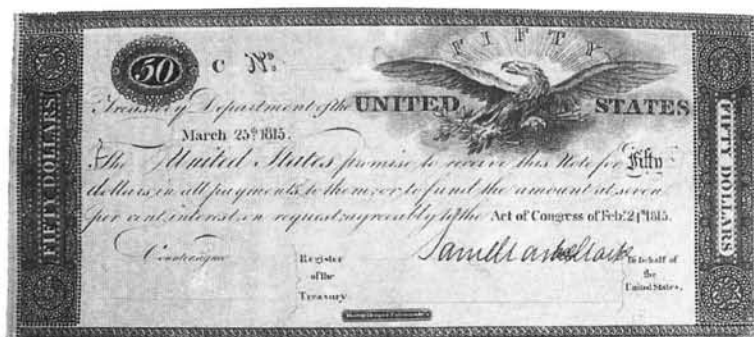 FIFTY
50 C No.
Treasury Department of the UNITED STATES
March 25th 1815.
The United States promise to receive this Note for Fifty
dollars, in all payments to them, or to fund the amount at seven
per cent, interest, on request, agreeably to the Act of Congress of Feb. 24th 1815.
Countersigned
Register
of the
Treasury
In behalf of
the
United States.
FIFTY DOLLARS
FIFTY DOLLARS